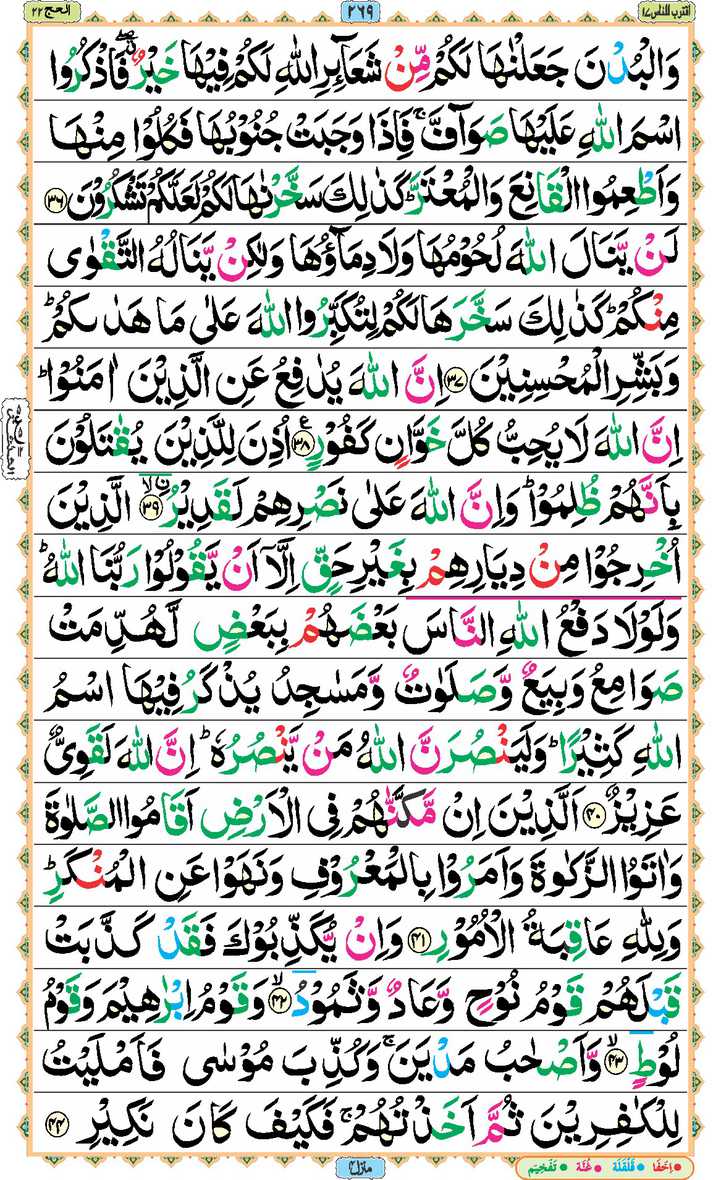 اقترب للناس ۱۷ ۲۶۹ الحج ۲۲
وَالْبُدْنَ جَعَلْنٰهَا لَكُمْ مِّنْ شَعَآئِرِ اللّٰهِ لَكُمْ فِيْهَا خَيْرٌ ۖۗ فَاذْكُرُوا
اسْمَ اللّٰهِ عَلَيْهَا صَوَآفَّ ۚ فَاِذَا وَجَبَتْ جُنُوْبُهَا فَكُلُوْا مِنْهَا
وَاَطْعِمُوا الْقَانِعَ وَالْمُعْتَرَّ ؕ كَذٰلِكَ سَخَّرْنٰهَا لَكُمْ لَعَلَّكُمْ تَشْكُرُوْنَ ۳۶
لَنْ يَّنَالَ اللّٰهَ لُحُوْمُهَا وَلَا دِمَآؤُهَا وَلٰكِنْ يَّنَالُهُ التَّقْوٰى
مِنْكُمْ ؕ كَذٰلِكَ سَخَّرَهَا لَكُمْ لِتُكَبِّرُوا اللّٰهَ عَلٰى مَا هَدٰىكُمْ ؕ
وَبَشِّرِ الْمُحْسِنِيْنَ ۳۷ اِنَّ اللّٰهَ يُدٰفِعُ عَنِ الَّذِيْنَ اٰمَنُوْا ؕ
اِنَّ اللّٰهَ لَا يُحِبُّ كُلَّ خَوَّانٍ كَفُوْرٍ ۳۸ ع اُذِنَ لِلَّذِيْنَ يُقٰتَلُوْنَ
بِاَنَّهُمْ ظُلِمُوْا ؕ وَاِنَّ اللّٰهَ عَلٰى نَصْرِهِمْ لَقَدِيْرُ ۙ۳۹ اۨلَّذِيْنَ
اُخْرِجُوْا مِنْ دِيَارِهِمْ بِغَيْرِ حَقٍّ اِلَّاۤ اَنْ يَّقُوْلُوْا رَبُّنَا اللّٰهُ ؕ
وَلَوْلَا دَفْعُ اللّٰهِ النَّاسَ بَعْضَهُمْ بِبَعْضٍ لَّهُدِّمَتْ
صَوَامِعُ وَبِيَعٌ وَّصَلَوٰتٌ وَّمَسٰجِدُ يُذْكَرُ فِيْهَا اسْمُ
اللّٰهِ كَثِيْرًا ؕ وَلَيَنْصُرَنَّ اللّٰهُ مَنْ يَّنْصُرُهٗ ؕ اِنَّ اللّٰهَ لَقَوِىٌّ
عَزِيْزٌ ۴۰ اَلَّذِيْنَ اِنْ مَّكَّنّٰهُمْ فِى الْاَرْضِ اَقَامُوا الصَّلٰوةَ
وَاٰتَوُا الزَّكٰوةَ وَاَمَرُوْا بِالْمَعْرُوْفِ وَنَهَوْا عَنِ الْمُنْكَرِ ؕ
وَلِلّٰهِ عَاقِبَةُ الْاُمُوْرِ ۴۱ وَاِنْ يُّكَذِّبُوْكَ فَقَدْ كَذَّبَتْ
قَبْلَهُمْ قَوْمُ نُوْحٍ وَّعَادٌ وَّثَمُوْدُ ۙ۴۲ وَقَوْمُ اِبْرٰهِيْمَ وَقَوْمُ
لُوْطٍ ۙ۴۳ وَّاَصْحٰبُ مَدْيَنَ ۚ وَكُذِّبَ مُوْسٰى فَاَمْلَيْتُ
لِلْكٰفِرِيْنَ ثُمَّ اَخَذْتُهُمْ ۚ فَكَيْفَ كَانَ نَكِيْرِ ۴۴
منزل ۴
اِخفَا قَلْقَلَة غُنَّة تَفْخِيْم